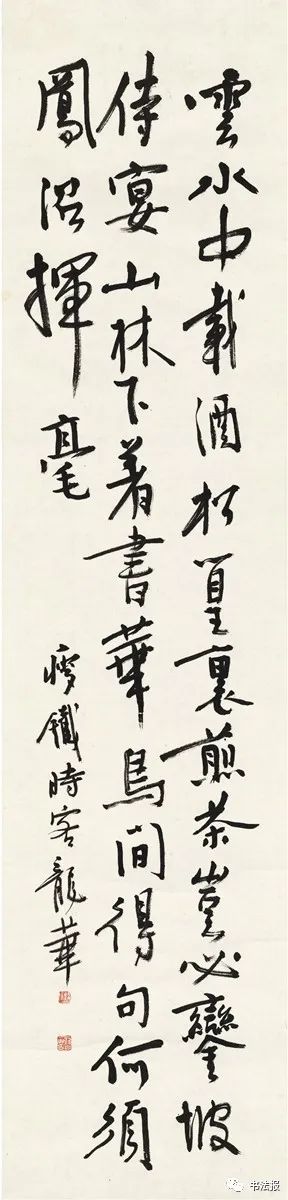 雲水中載酒松篁裏煎茶豈必鑾坡
侍宴山林下著書華鳥間得句何須
鳳沼揮毫
瘦鐵時客龍華
书法报